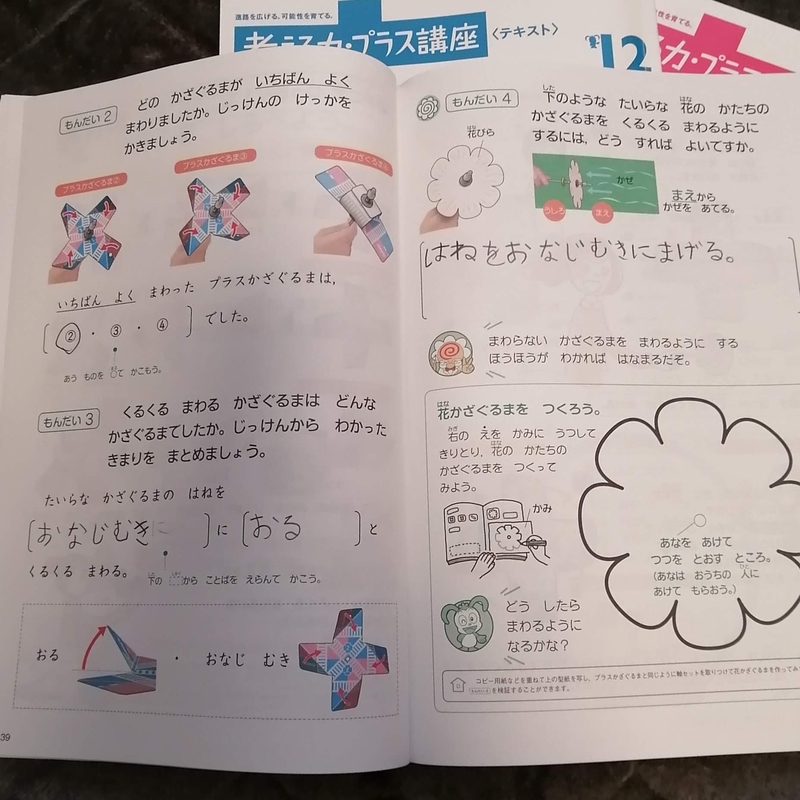 進路を広げる、可能性を育てる。
考える力・プラス講座
〈テキスト〉
12
性を育てる。
力・プラ
もんだい2
どの かざぐるまが いちばん よく
まわりましたか。じっけんの けっかを
かきましょう。
プラスかざぐるま②
プラスかざぐるま③
プラスかざぐるま④
いちばん よく まわった プラスかざぐるまは、
② ・ ③ ・ ④ でした。
あう ものを ○で かこもう。
もんだい3
くるくる まわる かざぐるまは どんな
かざぐるまでしたか。じっけんから わかった
きまりを まとめましょう。
たいらな かざぐるまの はねを
〔おなじむき〕に〔おる〕と
くるくる まわる。
下の から ことばを えらんで かこう。
おる ・ おなじ むき
39
もんだい4
下のような たいらな 花の かたちの
かざぐるまを くるくる まわるように
するには、どう すれば よいですか。
花びら
かぜ
うしろ
まえ
まえから
かぜを あてる。
はねをおなじむきにまげる。
まわらない かざぐるまを まわるように する
ほうほうが わかれば はなまるだぞ。
花かざぐるまを つくろう。
右の えを かみに うつして
きりとり、花の かたちの
かざぐるまを つくって
みよう。
かみ
あなを あけて
つつを とおす ところ。
(あなは おうちの 人に
あけて もらおう。)
どう したら
まわるように
なるかな?
コピー用紙などを重ねて上の型紙を写し、プラスかざぐるまと同じように軸セットを取りつけて花かざぐるまを作ってみ
を検証することができます。